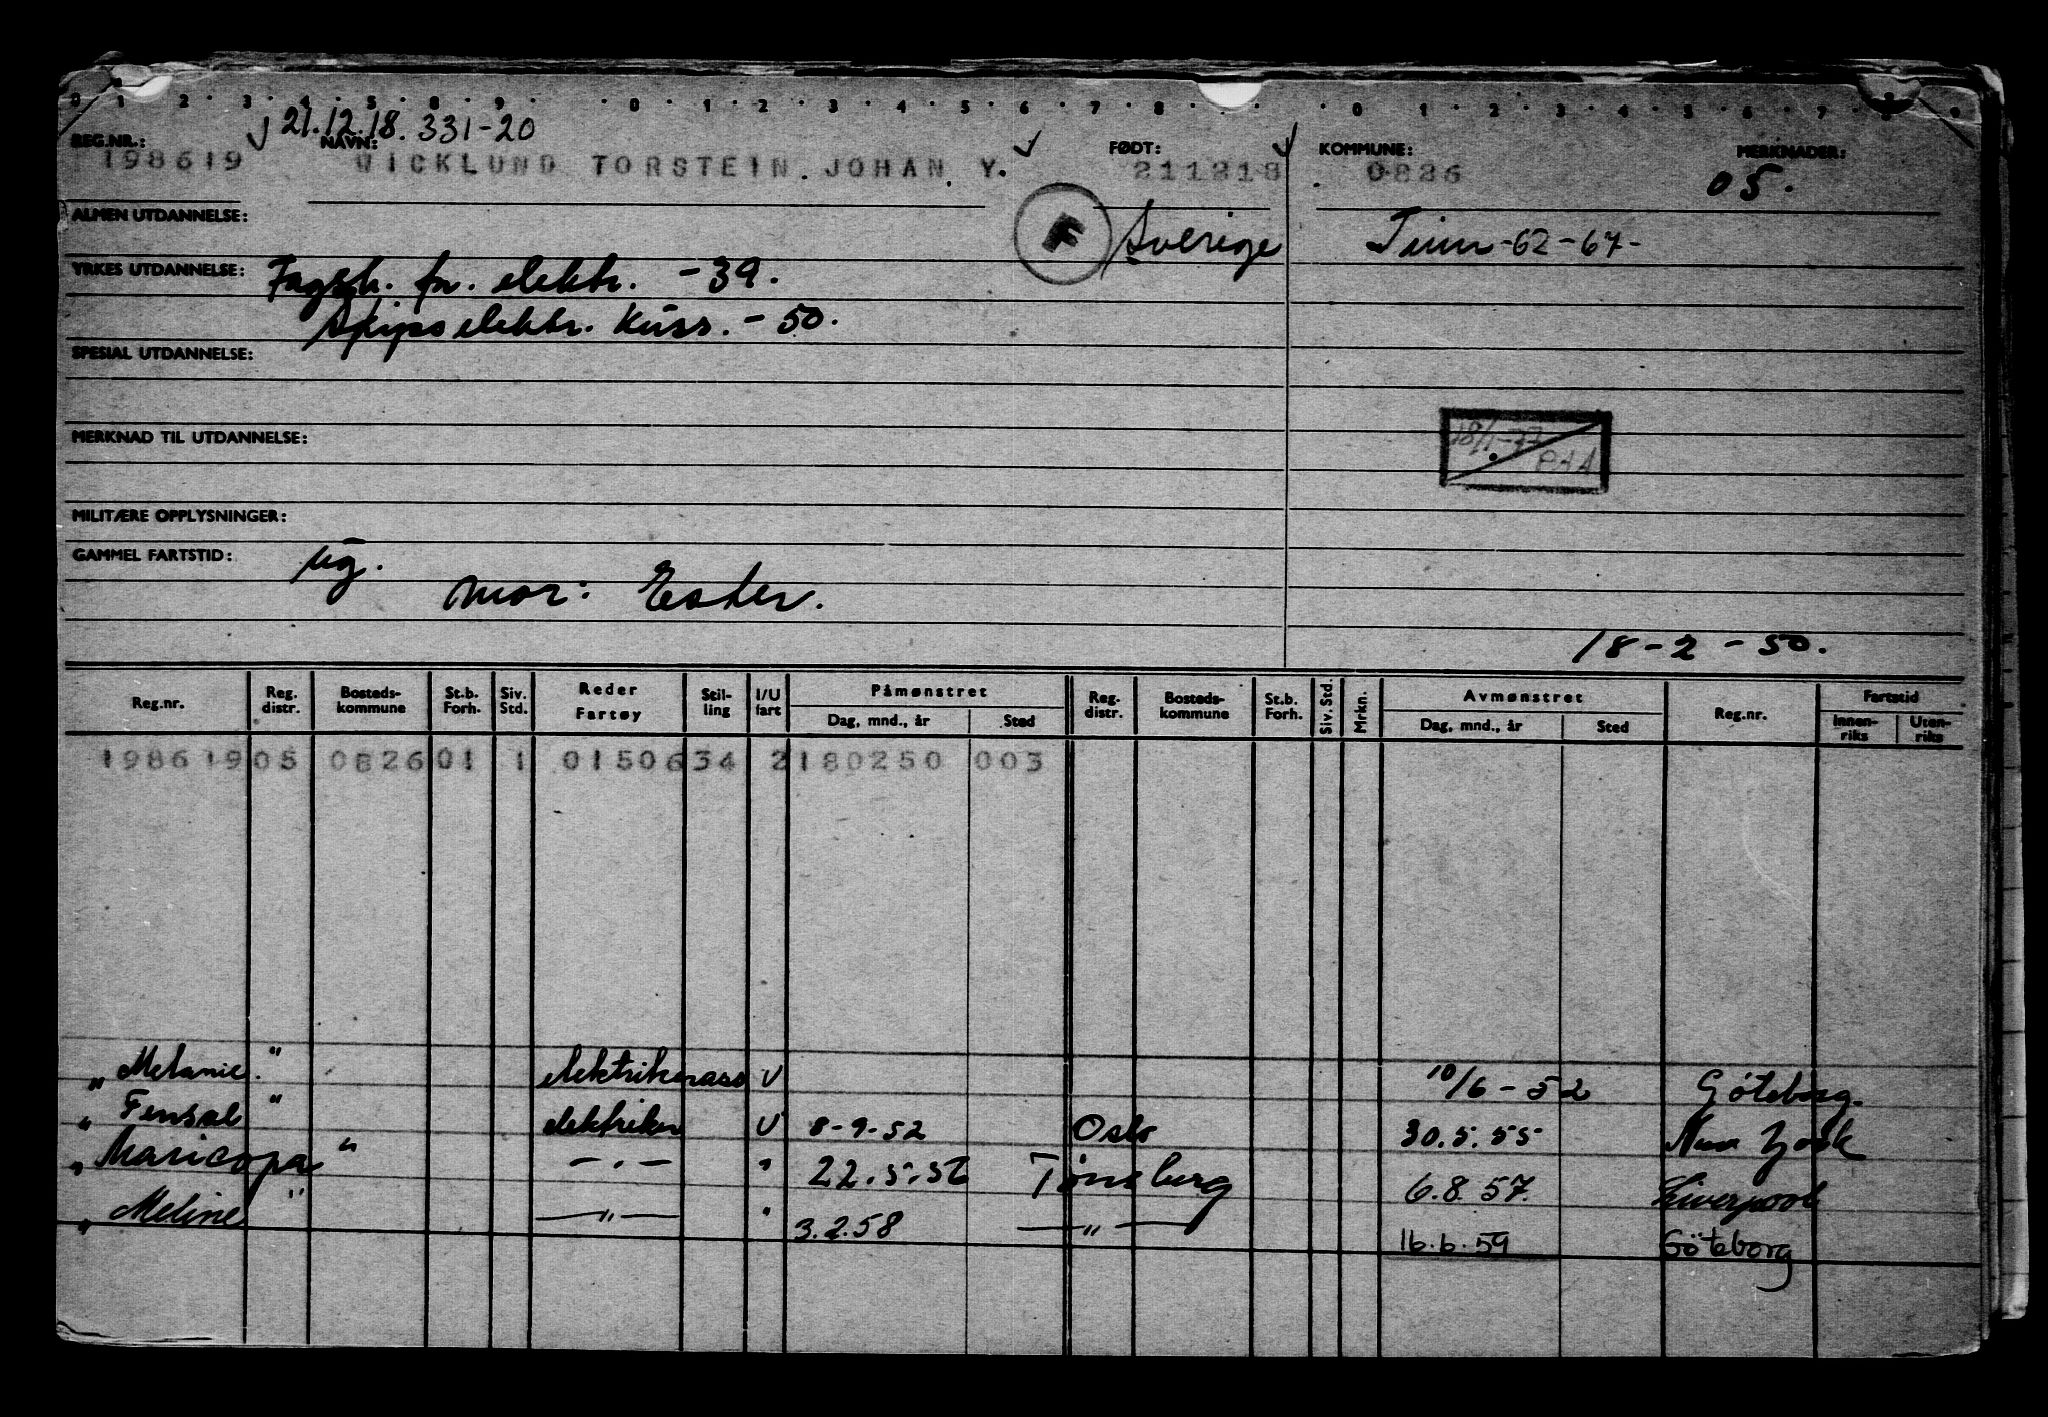 0 1 2 3 4 5 6 9 0 1 2 3 4 5 6 7 8 0 1 2 3 4 5 6 7 8 9
21.12.18. 331-20
REG.NR.: NAVN: FØDT: KOMMUNE: MERKNADER:
198619 WICKLUND TORSTEIN JOHAN Y. 211218 0826 05.
ALMEN UTDANNELSE: F Sverige Tinn -62-67-
YRKES UTDANNELSE: Fagsk. for elektr. -39.
Skips elektr. kurs. -50.
SPESIAL UTDANNELSE:
MERKNAD TIL UTDANNELSE:
18/1-77
MILITÆRE OPPLYSNINGER:
GAMMEL FARTSTID: ug.
Mor: Ester.
18-2-50.
Reg.nr. Reg. distr. Bosteds- kommune St.b. Forh. Siv. Std. Reder Fartøy Stil- ling I/U fart Påmønstret Dag, mnd., år Sted Reg. distr. Bosteds- kommune St.b. Forh. Siv. Std. Mrkn. Avmønstret Dag, mnd., år Sted Reg.nr. Fartstid Innen- riks Uten- riks
198619 05 0826 01 1 01506 34 2 180250 003
„ Melanie " elektrikerass U 10/6-52 Göteborg.
„ Fensal " elektriker U 8-9-52 Oslo 30.5.55 New York
„ Maricopa " -.- " 22.5.56 Tønsberg 6.8.57. Liverpool
„ Meline " —„— " 3.2.58 —„— 16.6.59 Göteborg